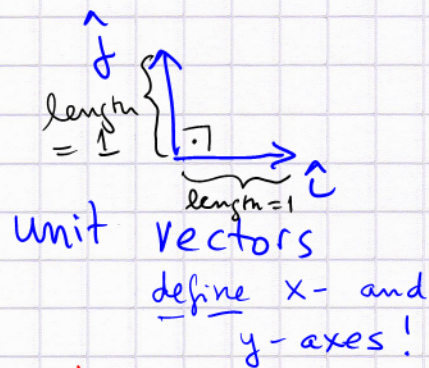 ĵ
length
= 1
length = 1
î
unit vectors
define x- and
y-axes!